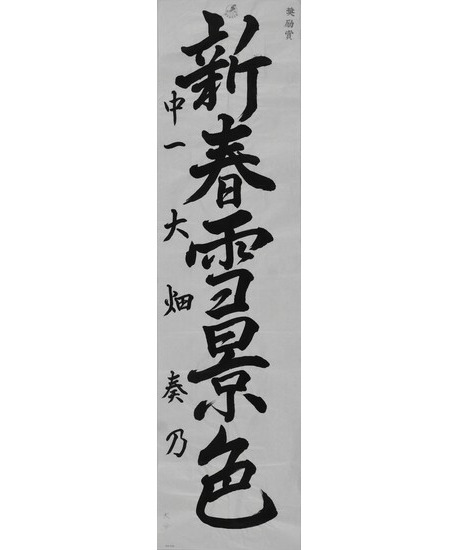 奨励賞
新春雪景色
中一 大畑 奏乃